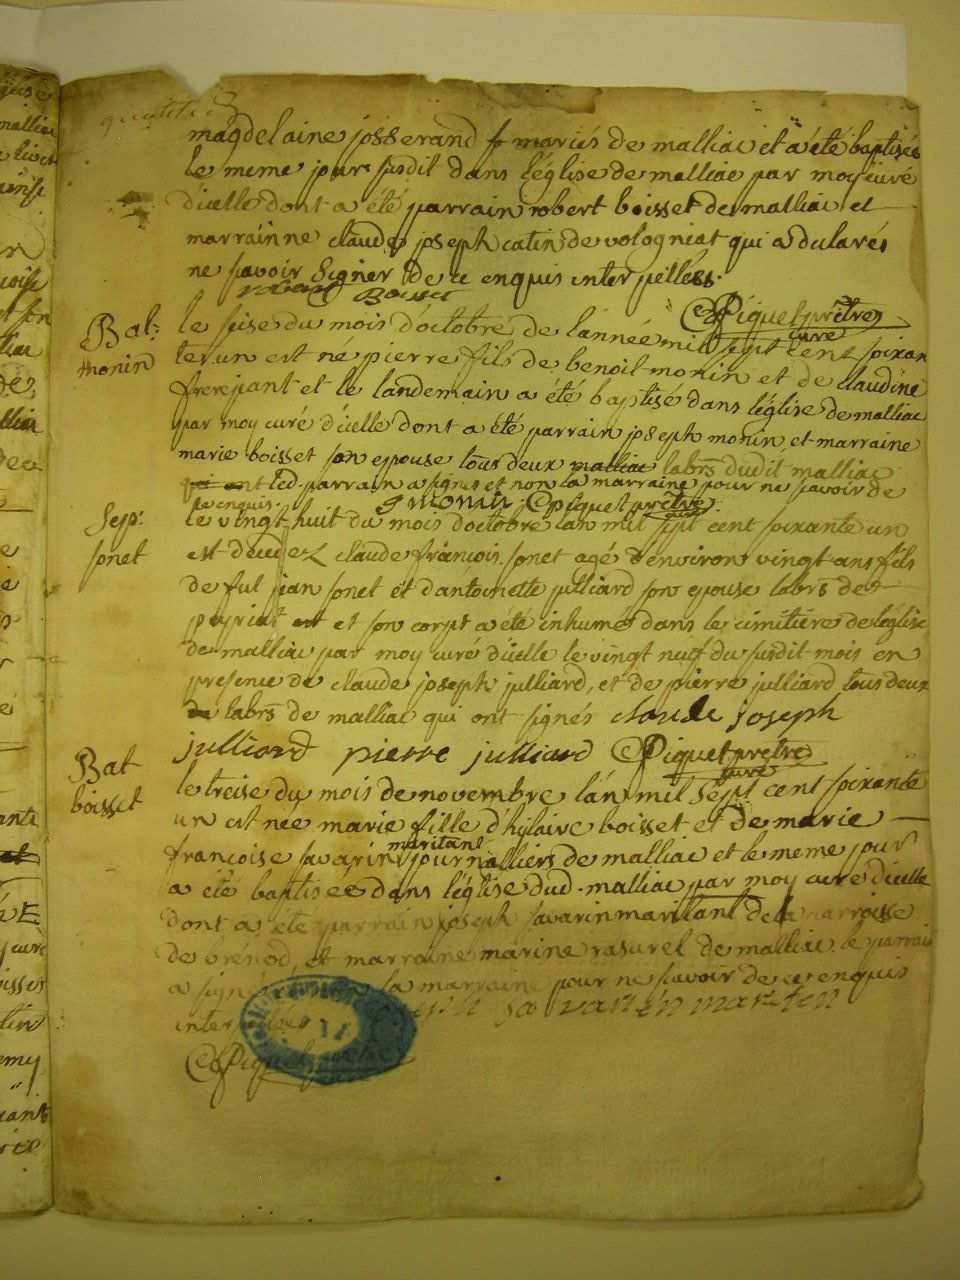 magdelaine josserand mariés de malliac et a été baptisés
le meme jour susdit dans léglise de malliac par moy curé
d'icelle dont a été parrain robert boisset de malliac et
marrainne claude joseph catin de vologniat qui a dularés
ne savoir signer de ce enquis inter pellés.
robert Boisset
Piquet prêtre
curé
Bat:
monin
le seise du mois d'octobre de lannée mil sept cent soixan
te un est né pierre fils de benoit monin et de claudine
frerejant et le landemain a été baptisé dans léglise de malliac
par moy curé d'icelle dont a été parrain joseph monin et marraine
marie boisset son epouse tous deux malliac labrs dudit malliac
led. parrain a signés et non la marraine pour ne savoir de
ce enquis. J monin Piquet prêtre
Sep:
sonet
le vingt huit du mois doctobre lan mil sept cent soixante un
est decedez claude françois sonet agé d'environ vingt ans fils
de fut jean sonet et d'antoinette julliard son epouse labrs de
peyriat et son corpt a été inhumés dans le cimitiere de léglise
de malliac par moy curé d'icelle le vingt neuf du susdit mois en
presence de claude joseph julliard, et de pierre julliard tous deux
labrs de malliac qui ont signés claude joseph
julliard pierre julliard Piquet prêtre
curé
Bat
boisset
le treise du mois de novembre lan mil sept cent soixante
un est née marie fille d'hilaire boisset et de marie
françoise savarin maritant journalliers de malliac et le meme jour
a été baptisée dans léglise dud. malliac par moy curé d'icelle
dont a été parrain joseph savarin maritant de la parroisse
de brénod, et marraine marine rasurel de malliac. le parrain
a signé la marraine pour ne savoir de ce enquis
inter savarin mariten
Piquet prêtre